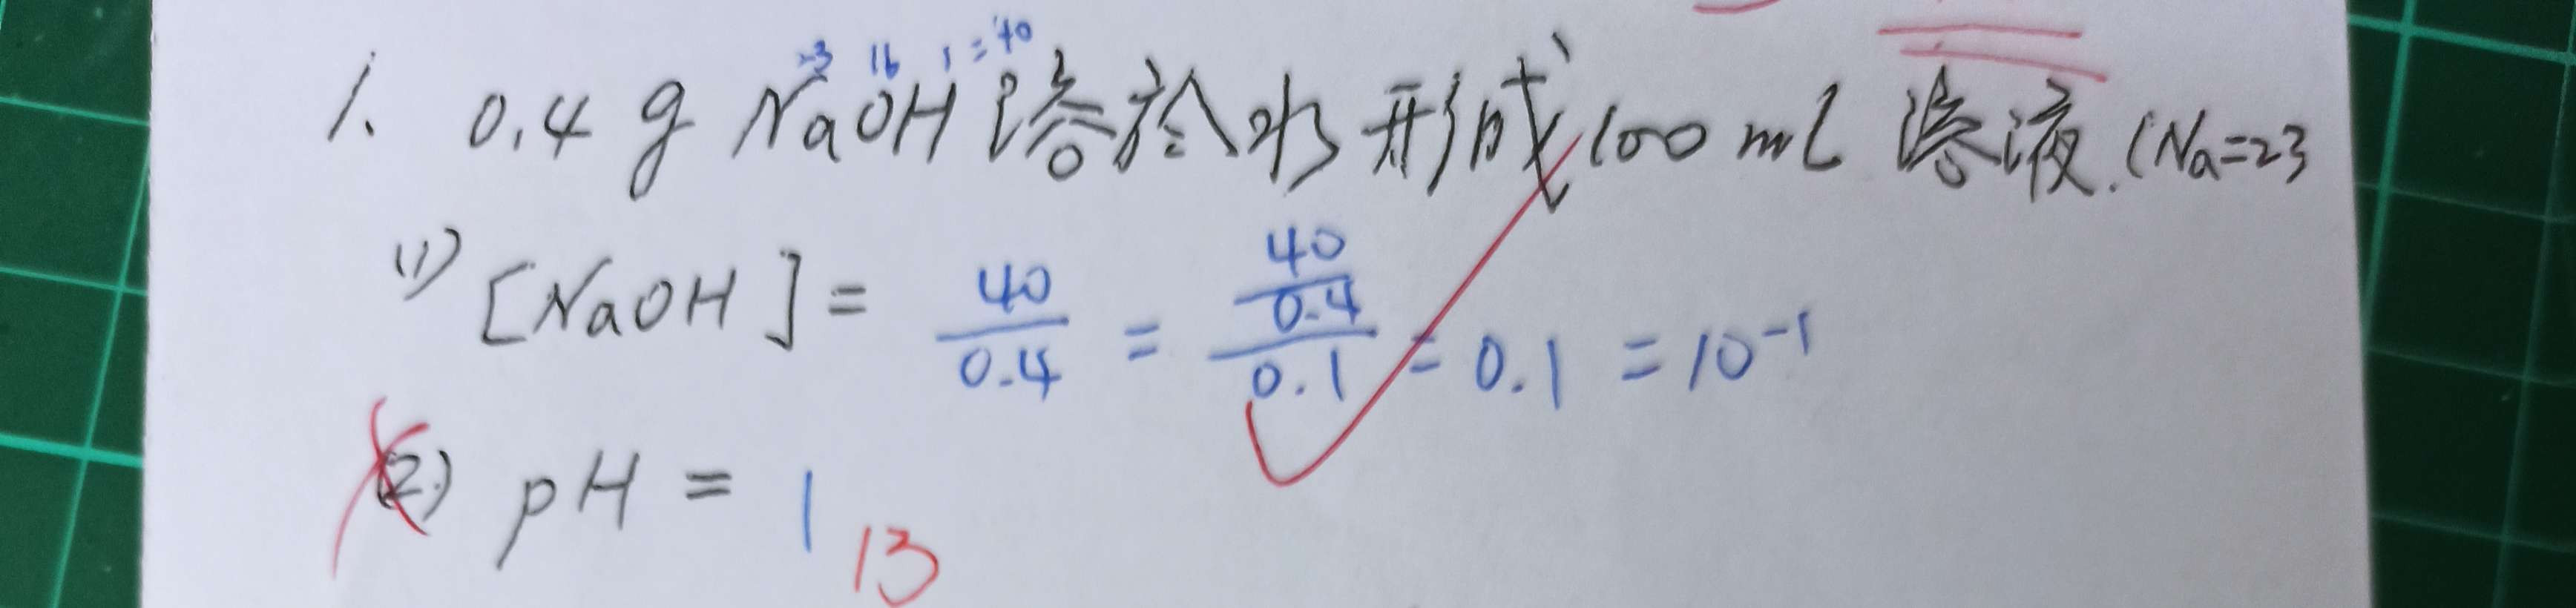 23 16 1 = 40
1. 0.4 g NaOH 溶於水形成 100 mL 溶液. (Na=23
(1) [NaOH] = 40/0.4 = (40/0.4)/0.1 = 0.1 = 10⁻¹
(2) pH = 1 13